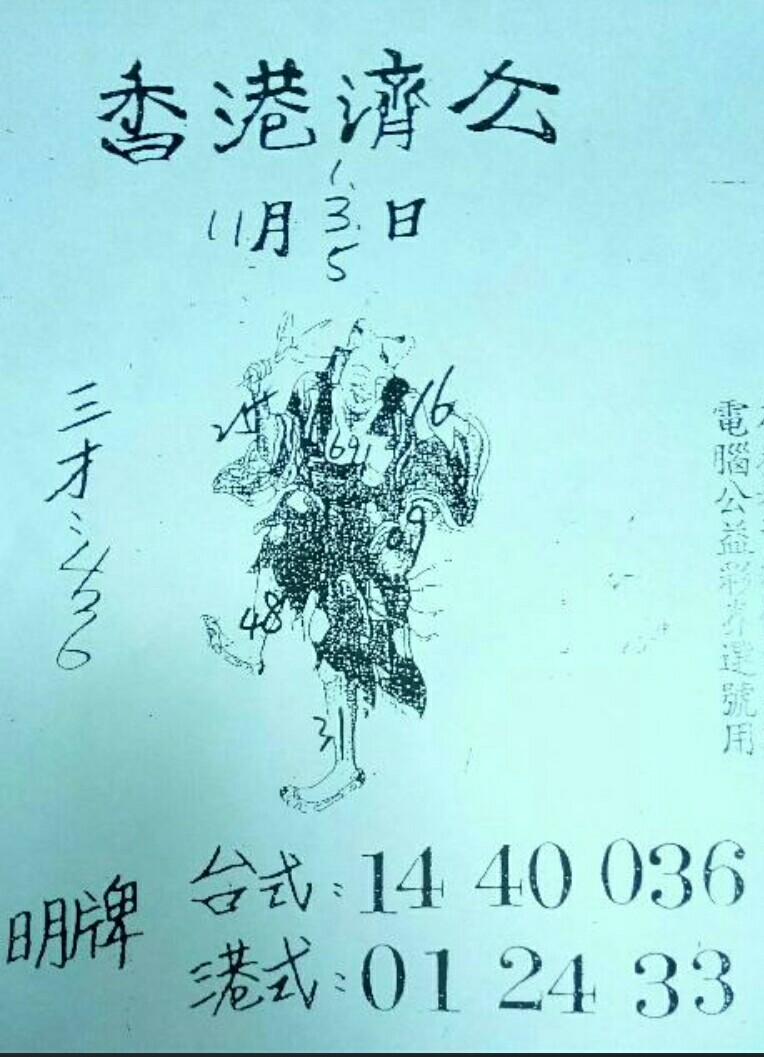 香港濟公
11月1.3.5日
16
69
09
48
31
三才:
6
電腦公益彩券選號用
明牌
台式:14 40 036
港式:01 24 33